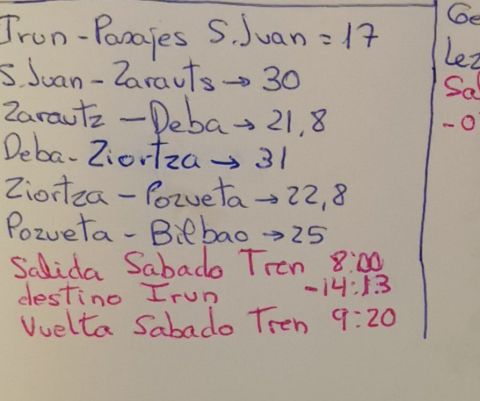 Irun - Pasajes S.Juan = 17
S.Juan - Zarauts → 30
Zarautz - Deba → 21,8
Deba - Ziortza → 31
Ziortza - Pozueta → 22,8
Pozueta - Bilbao → 25
Salida Sabado Tren 8:00
destino Irun - 14:13
Vuelta Sabado Tren 9:20
Ge
Lez
Sal
- 0